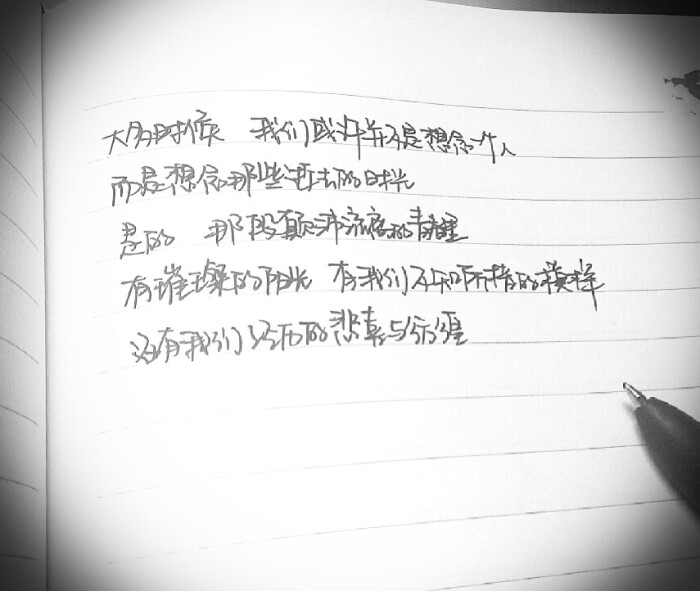 大多时候 我们或许并不是想念一个人
而是想念那些逝去的时光
是的 那段颠沛流离的青春
有璀璨的阳光 有我们不知所措的模样
还有我们经历的悲喜与